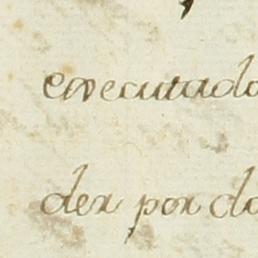 executado
der por do